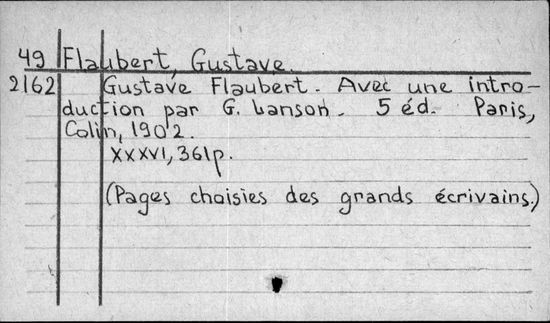 49 Flaubert, Gustave.
2162 Gustave Flaubert. Avec une intro-
duction par G. Lanson. 5 éd. Paris,
Colin, 1902.
XXXVI, 361p.
(Pages choisies des grands écrivains.)